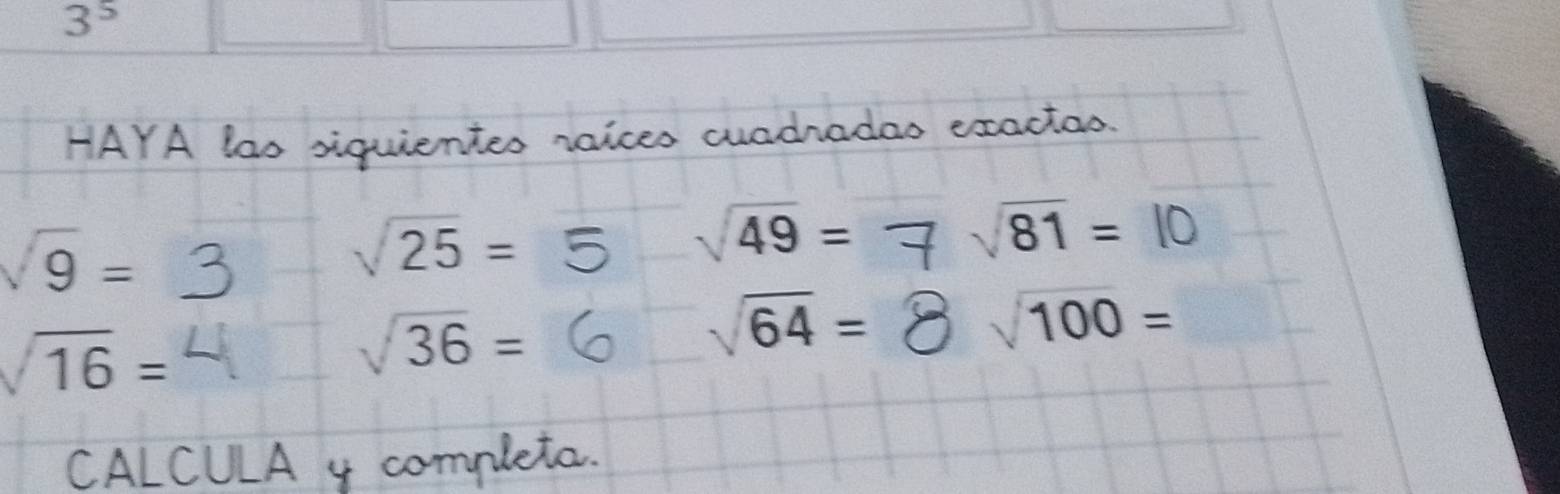 3⁵
HAYA las siguientes raíces cuadradas exactas.
√9 = 3 √25 = 5 √49 = 7 √81 = 10
√16 = 4 √36 = 6 √64 = 8 √100 =
CALCULA y completa.